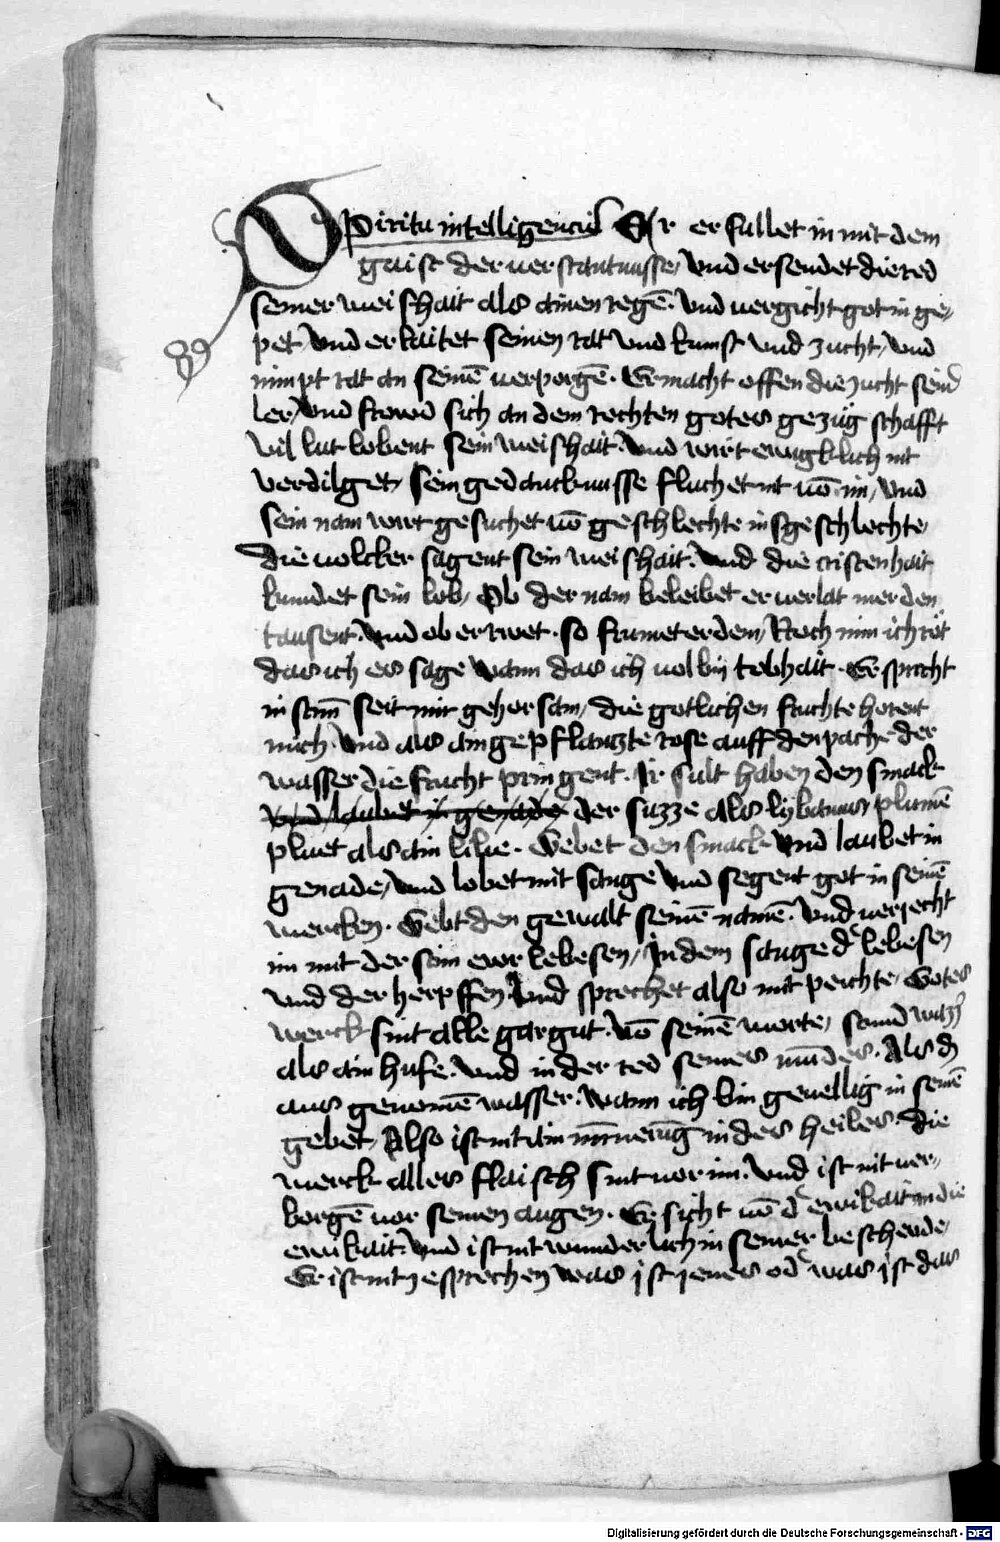 Spiritu intelligencie Er er fullet in mit dem
gaist der uerstantnusse, und ersendet die red
seiner weishait als ainen regē. und uergicht got in ge,
pet, und erlaitet seinen rat und kunst und zucht, und
nimpt rat an seinē uerporgē. Er macht offen die zucht seind
ler, und frowd sich an dem rechten gotes gezüg schafft
vil lut lobent sein weishait. und wirt ewigklich nit
verdilget, sein gedancknusse fluchet nit uō im, und
sein nam wirt gesuchet uō geschlechte ins geschlechte,
die uolcker sagent sein weishait. und die cristenhait
kundet sein lob, Ob der nam beleibet er uerlat mer den
tausent. und ob er rwet. so frumet er dem, Noch nim ich rät
das ich es sage wann das ich uol bin tobhait. Er spricht
in stim̄ seit mir gehorsam, die gotlichen fruchte horent
mich. und als ain gepflantzte rose auff den pache der
wasser die frucht pringent. Ir sult haben den smack
und laubet in genade der suzze als lybanus plumē
pluet als ain lilie. Gebet den smack und laubet in
genade, und lobet mit sange und segent got in seinē
wercken. Gebt den gewalt seinē namē. und uerjecht
im mit der stim ewr lebesen, In dem sange d' lebesen
und der herpffen und sprechet also mit peichte, Gotes
werck sint alle gar gut. uō seinē worte, stund wazz'
als ain hufe. und in der red seines mūdes. Als d'
aus genomē wasser. wann ich bin geuellig in seinē
gebet, Also ist nit ain mīnerūg in des heiles. die
werck alles flaisch sint uor im. und ist nit uer,
borgē uor seinen augen. Er sicht uō d' ewikait in die
ewikait. und ist nit wunderlich in seiner beschende,
Er ist nit zesprechen was ist jenes od' was ist das
Digitalisierung gefördert durch die Deutsche Forschungsgemeinschaft - DFG